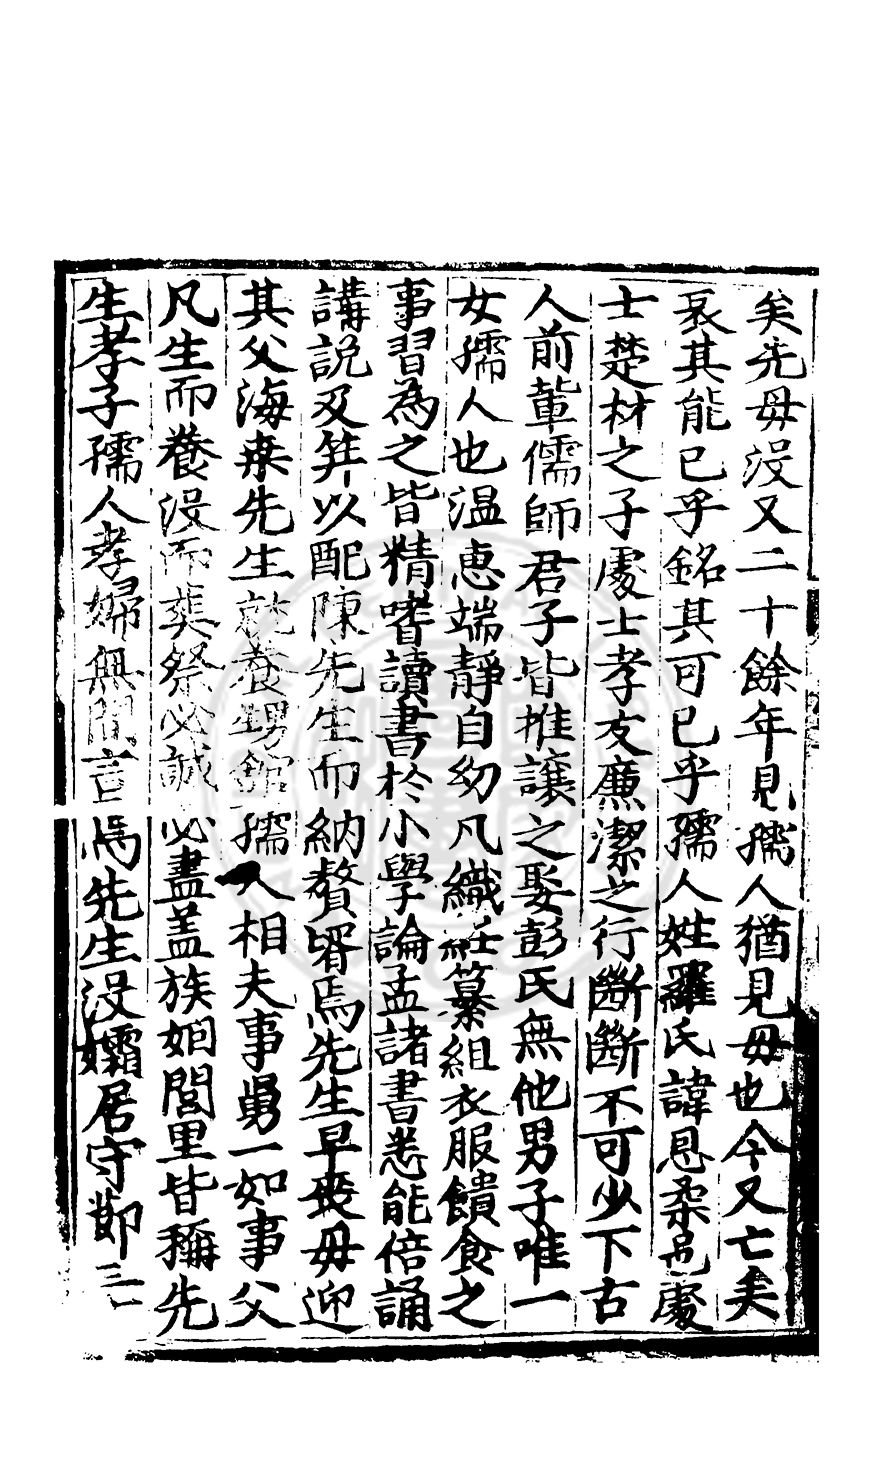 矣先毋沒又二十餘年見孺人猶見毋也今又亡矣
哀其能已乎銘其可已乎孺人姓羅氏諱息柔邑處
士楚材之子處士孝友廉潔之行斷斷不可少下古
人前輩儒師君子皆推讓之娶彭氏無他男子唯一
女孺人也温恵端靜自幼凡織紝纂組衣服饋食之
事習為之皆精嗜讀書於小學論孟諸書悉能倍誦
講說及笄以配陳先生而納贅壻焉先生早喪毋迎
其父海桑先生就養甥館孺人相夫事舅一如事父
凡生而養沒而葬祭必誠必盡盖族姻閭里皆稱先
生孝子孺人孝婦無間言焉先生沒孀居守節三